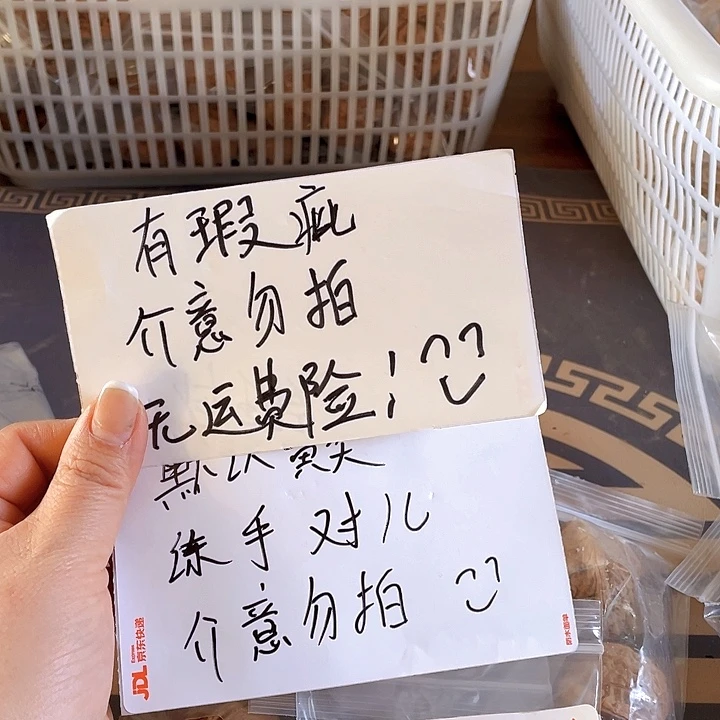 有瑕疵
介意勿拍
无运费险!
默认黄尖
练手对儿
介意勿拍
JDL 京东快递
Express